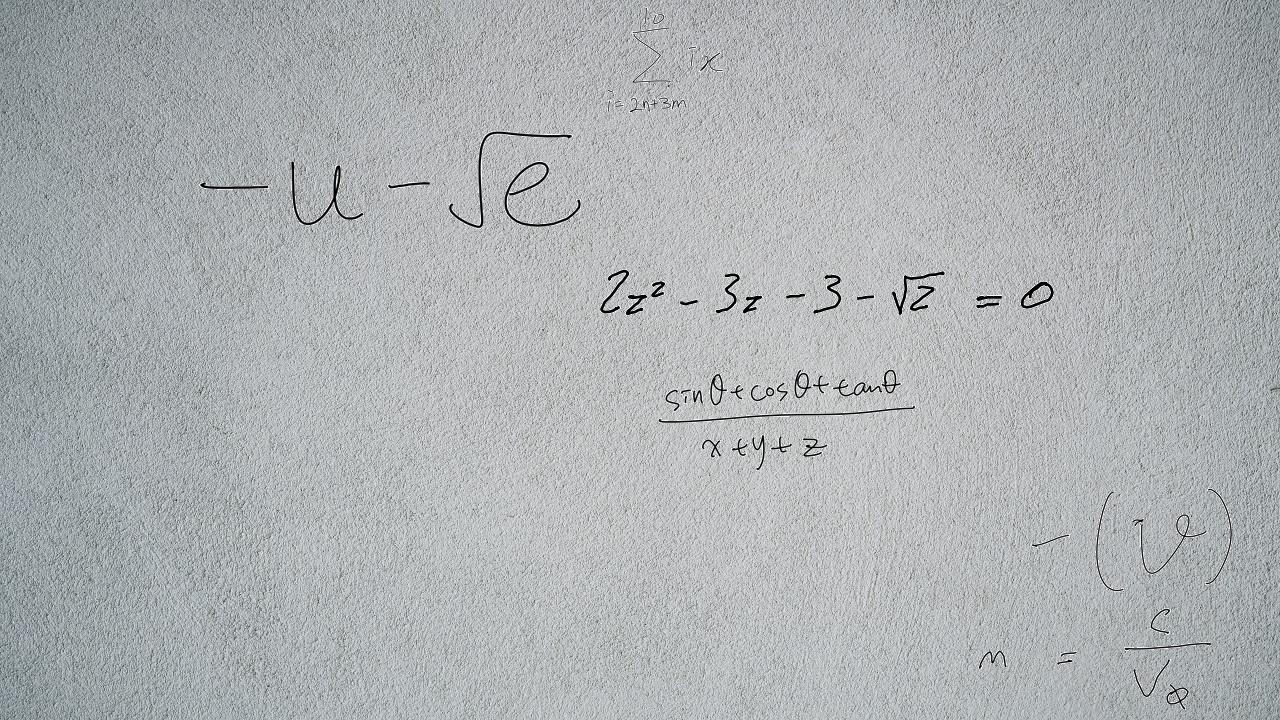 \sum_{i=2n+3m}^{10} ix
-u-\sqrt{e}
2z^2-3z-3-\sqrt{z}=0
\frac{\sin\theta+\cos\theta+\tan\theta}{x+y+z}
-(v)
n=\frac{c}{v_\phi}